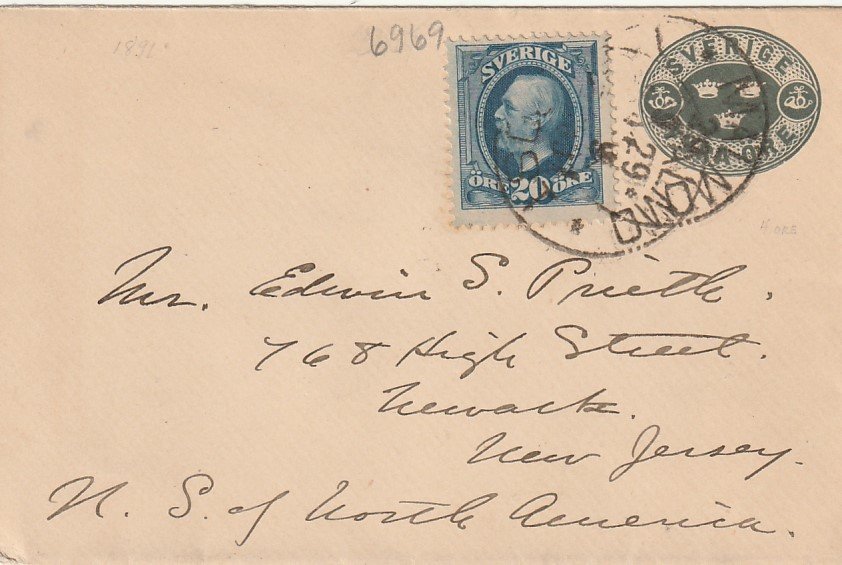 1891
6969
SVERIGE
ÖRE 20 ÖRE
SVERIGE
ÖRE
29
4 ORE
Mr. Edwin S. Prieth.
768 High Street.
Newark.
New Jersey.
U. S. of North America.